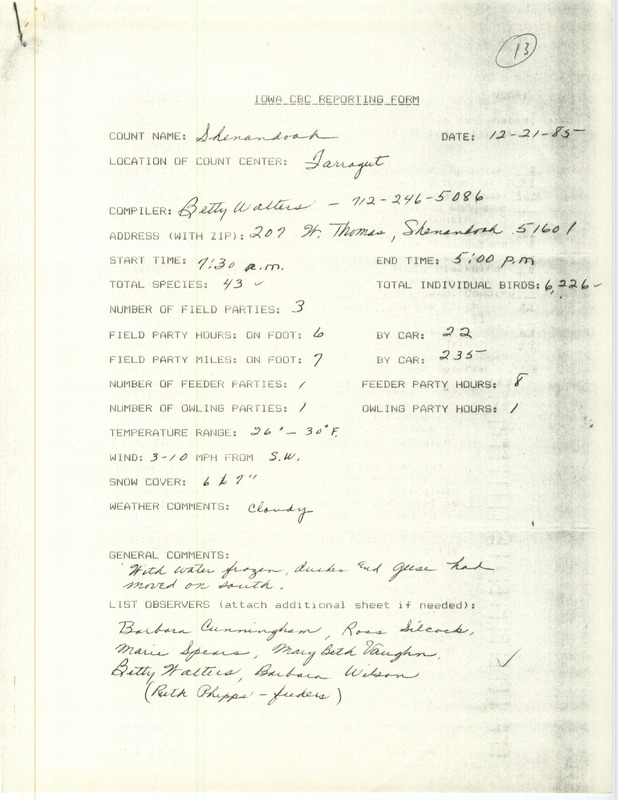 13
IOWA CBC REPORTING FORM
COUNT NAME: Shenandoah DATE: 12-21-85
LOCATION OF COUNT CENTER: Farragut
COMPILER: Betty Walters - 712-246-5086
ADDRESS (WITH ZIP): 207 W. Thomas, Shenandoah 51601
START TIME: 7:30 a.m. END TIME: 5:00 p.m
TOTAL SPECIES: 43 ✓ TOTAL INDIVIDUAL BIRDS: 6,226 ✓
NUMBER OF FIELD PARTIES: 3
FIELD PARTY HOURS: ON FOOT: 6 BY CAR: 22
FIELD PARTY MILES: ON FOOT: 7 BY CAR: 235
NUMBER OF FEEDER PARTIES: 1 FEEDER PARTY HOURS: 8
NUMBER OF OWLING PARTIES: 1 OWLING PARTY HOURS: 1
TEMPERATURE RANGE: 26° - 30° F.
WIND: 3-10 MPH FROM S.W.
SNOW COVER: 6 to 7"
WEATHER COMMENTS: Cloudy
GENERAL COMMENTS:
With water frozen, ducks and Geese had
moved on south.
LIST OBSERVERS (attach additional sheet if needed):
Barbara Cunningham, Ross Silcock,
Marie Spears, Mary Beth Vaughn,
Betty Walters, Barbara Wilson ✓
(Ruth Phipps - feeders)